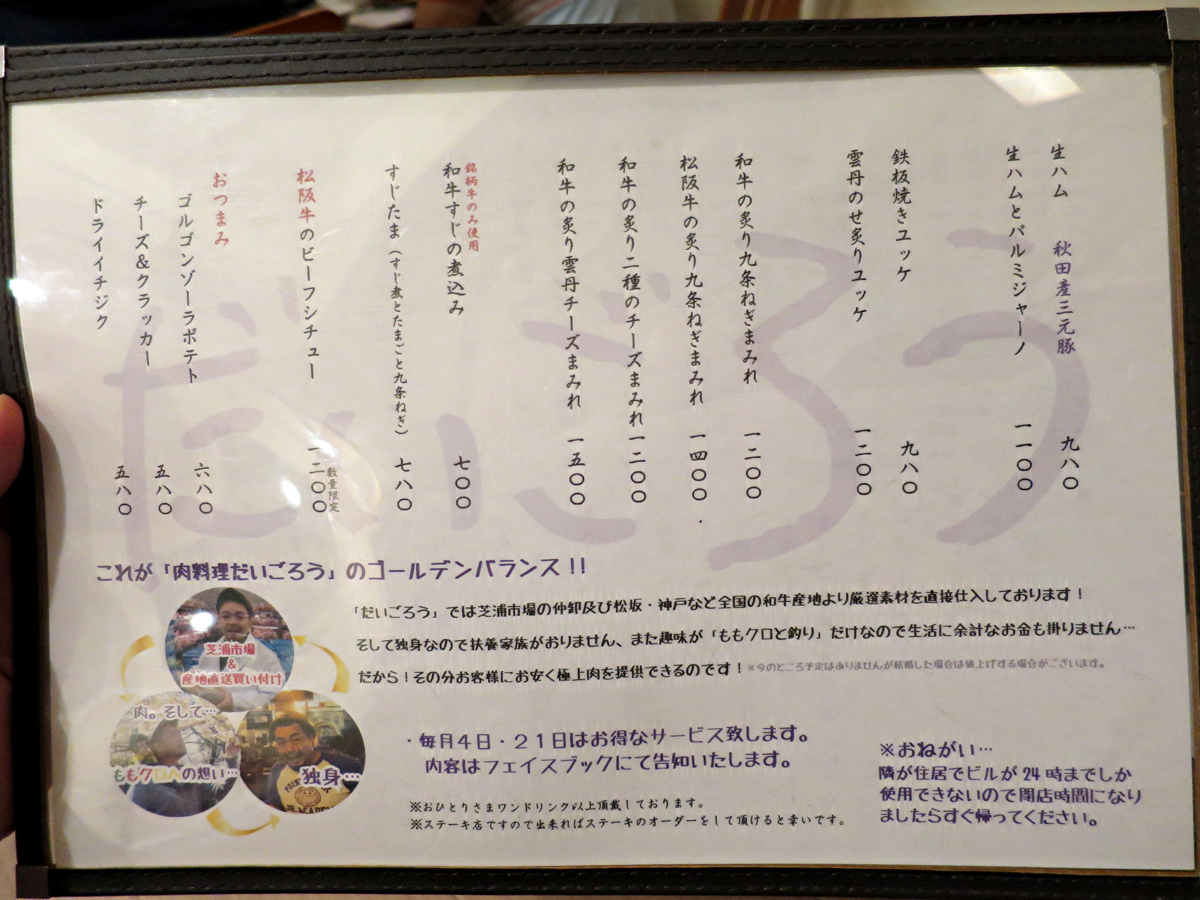 生ハム 秋田産三元豚 九八〇
生ハムとパルミジャーノ 一一〇〇
鉄板焼きユッケ 九八〇
雲丹のせ炙りユッケ 一二〇〇
和牛の炙り九条ねぎまみれ 一二〇〇
松阪牛の炙り九条ねぎまみれ 一四〇〇
和牛の炙り二種のチーズまみれ 一二〇〇
和牛の炙り雲丹チーズまみれ 一五〇〇
銘柄牛のみ使用
和牛すじの煮込み 七〇〇
すじたま(すじ煮とたまごと九条ねぎ) 七八〇
数量限定
松阪牛のビーフシチュー 一二〇〇
おつまみ
ゴルゴンゾーラポテト 六八〇
チーズ&クラッカー 五八〇
ドライイチジク 五八〇
だいごろう
これが「肉料理だいごろう」のゴールデンバランス!!
芝浦市場
&
産地直送買い付け
肉。そして…
ももクロへの想い…
独身…
「だいごろう」では芝浦市場の仲卸及び松坂・神戸など全国の和牛産地より厳選素材を直接仕入しております!
そして独身なので扶養家族がおりません、また趣味が「ももクロと釣り」だけなので生活に余計なお金も掛りません…
だから!その分お客様にお安く極上肉を提供できるのです!※今のところ予定はありませんが結婚した場合は値上げする場合がございます。
・毎月4日・21日はお得なサービス致します。
内容はフェイスブックにて告知いたします。
※おひとりさまワンドリンク以上頂戴しております。
※ステーキ店ですので出来ればステーキのオーダーをして頂けると幸いです。
※おねがい…
隣が住居でビルが24時までしか
使用できないので閉店時間になり
ましたらすぐ帰ってください。